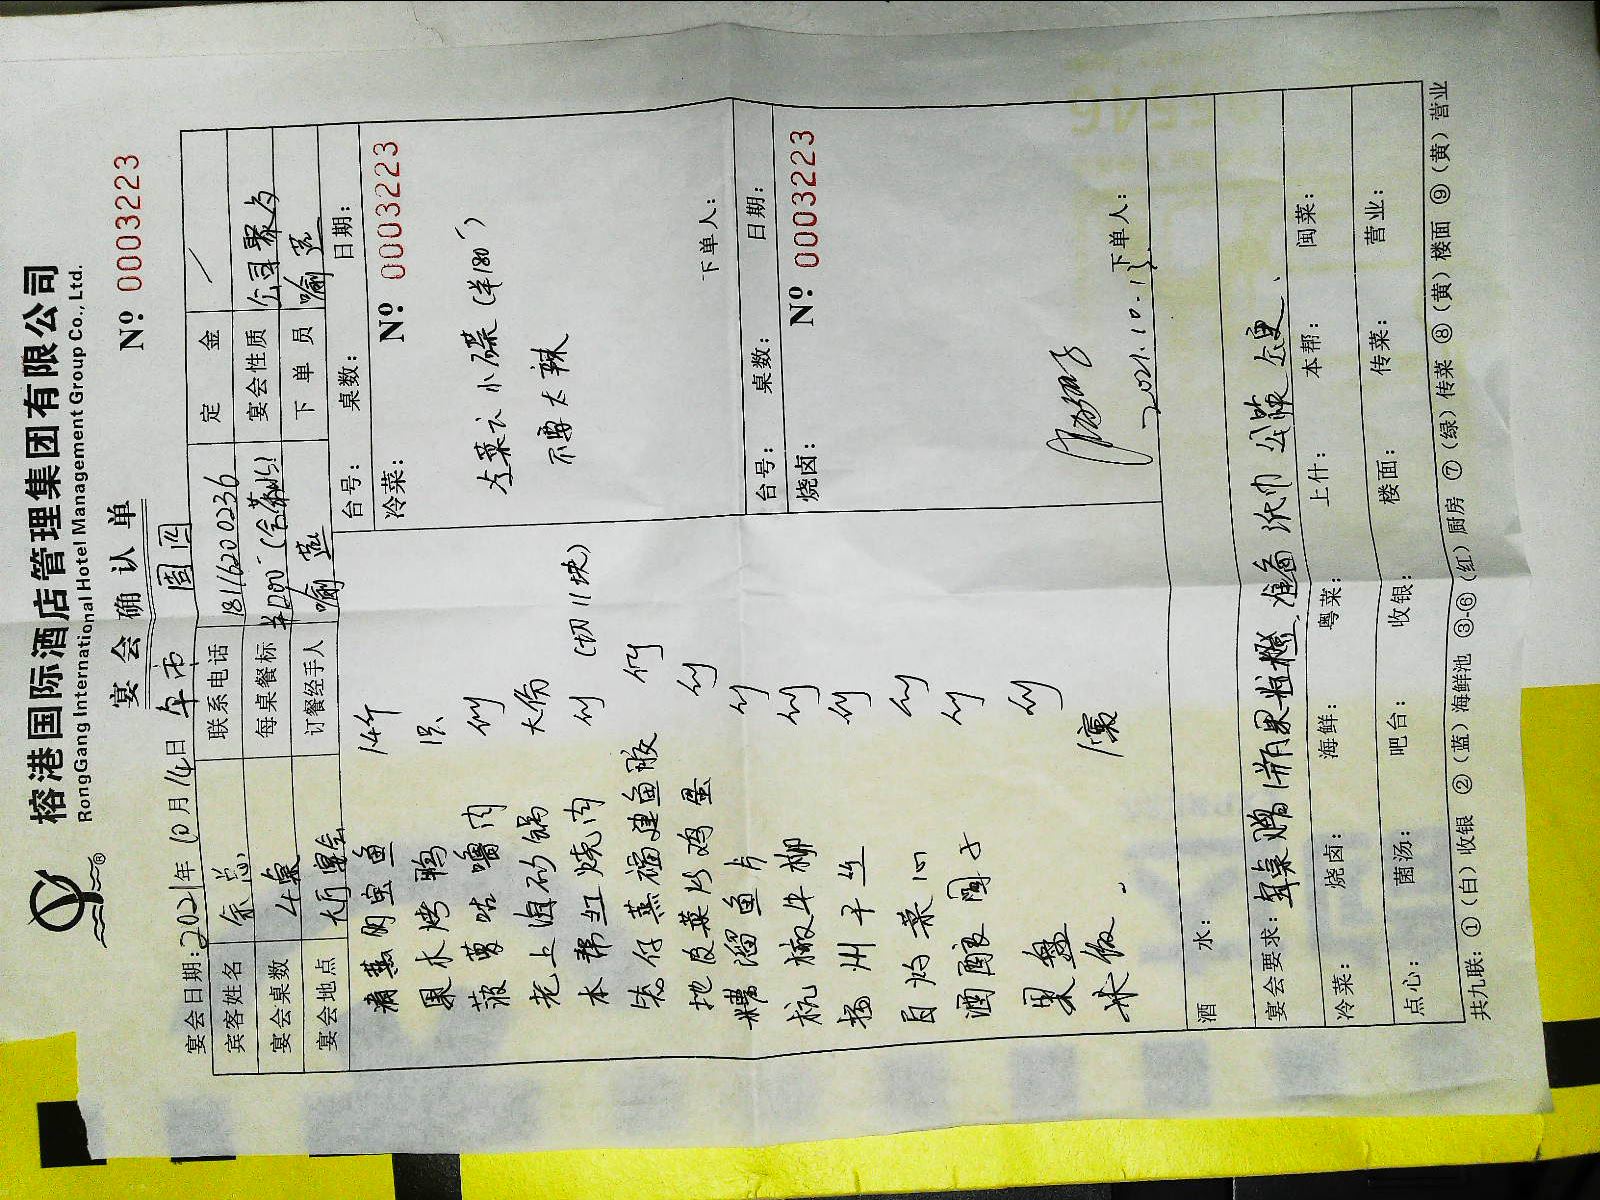 榕港国际酒店管理集团有限公司
RongGang International Hotel Management Group Co., Ltd.
宴会确认单
Nº 0003223
宴会日期:2021年10月14日 午市 周四
宾客姓名 余总 联系电话 18116200236 定金 /
宴会桌数 4桌 每桌餐标 宴会性质 公司聚会
宴会地点 订餐经手人 喻 下单员 喻
台号: 桌数: 日期:
冷菜: Nº 0003223
小碟
不要太辣
下单人:
台号: 桌数: 日期:
烧卤: Nº 0003223
下单人:
2021.10.13
清蒸 鱼 14个
果木烤鸭 1只
菠萝咕噜肉 例
老上海砂锅 大份
本帮红烧肉 例 (切11块)
仔蒸福建鱼胶 例
地皮菜炒鸡蛋 例
糟溜鱼片 例
杭椒牛柳 例
扬州干丝 例
白灼菜心 例
酒酿圆子 例
果盘 例
米饭 1
酒水:
宴会要求: 每桌赠1瓶果粒橙 纸巾 公筷
冷菜: 烧卤: 海鲜: 粤菜: 上什: 本帮: 闽菜:
点心: 菌汤: 吧台: 收银: 楼面: 传菜: 营业:
共九联: ①(白)收银 ②(蓝)海鲜池 ③-⑥(红)厨房 ⑦(绿)传菜 ⑧(黄)楼面 ⑨(黄)营业